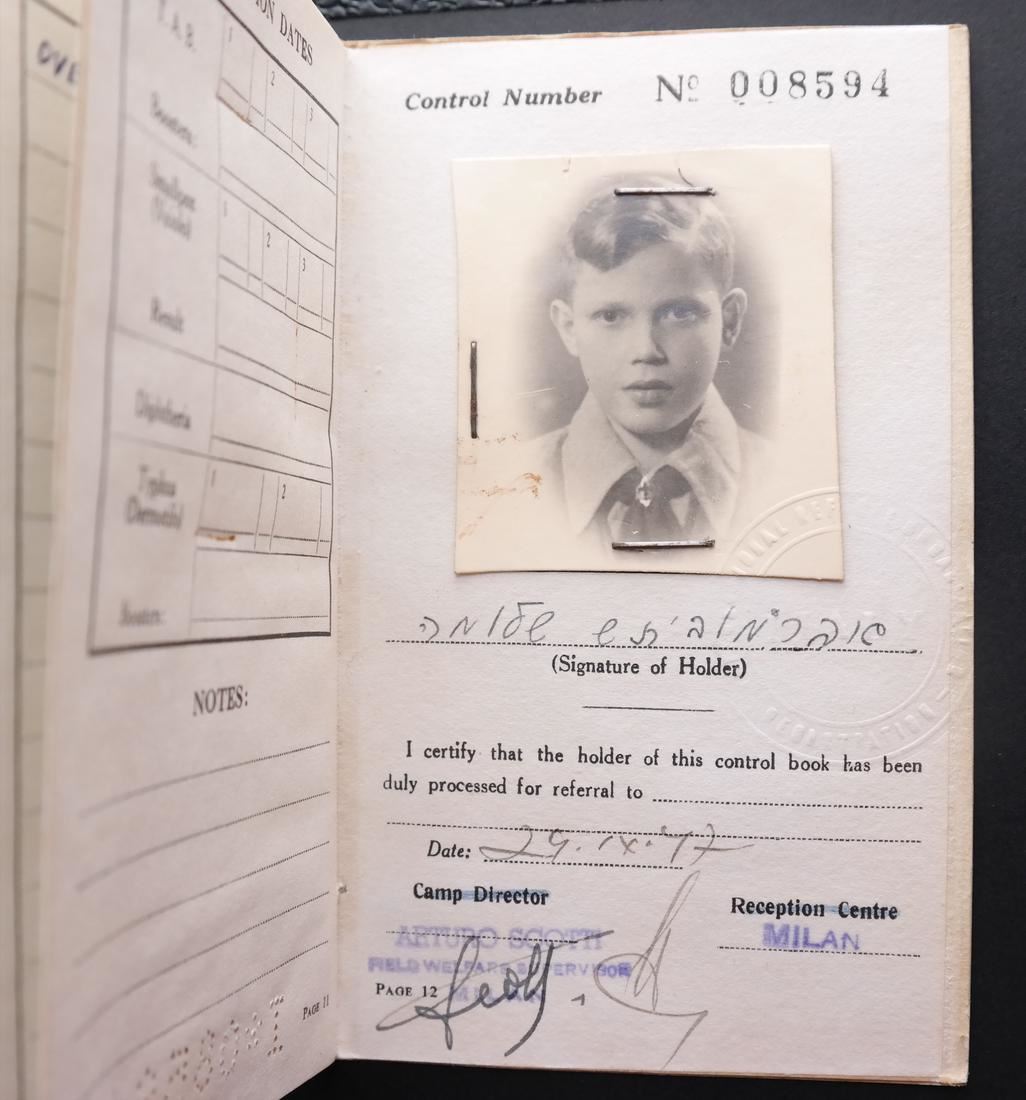 OVE
ION DATES
T. A. B.
1 2 3
Boosters:
Smallpox
1 2 3
Result
Diphtheria
Typhus
1 2
Boosters:
NOTES:
PAGE 11
Control Number Nº 008594
אברמוביתש שלומה
(Signature of Holder)
I certify that the holder of this control book has been
duly processed for referral to
Date: 29.IX.47
Camp Director
Reception Centre
ARTURO SCOTTI
MILAN
FIELD WELFARE SUPERVISOR
PAGE 12 MILAN